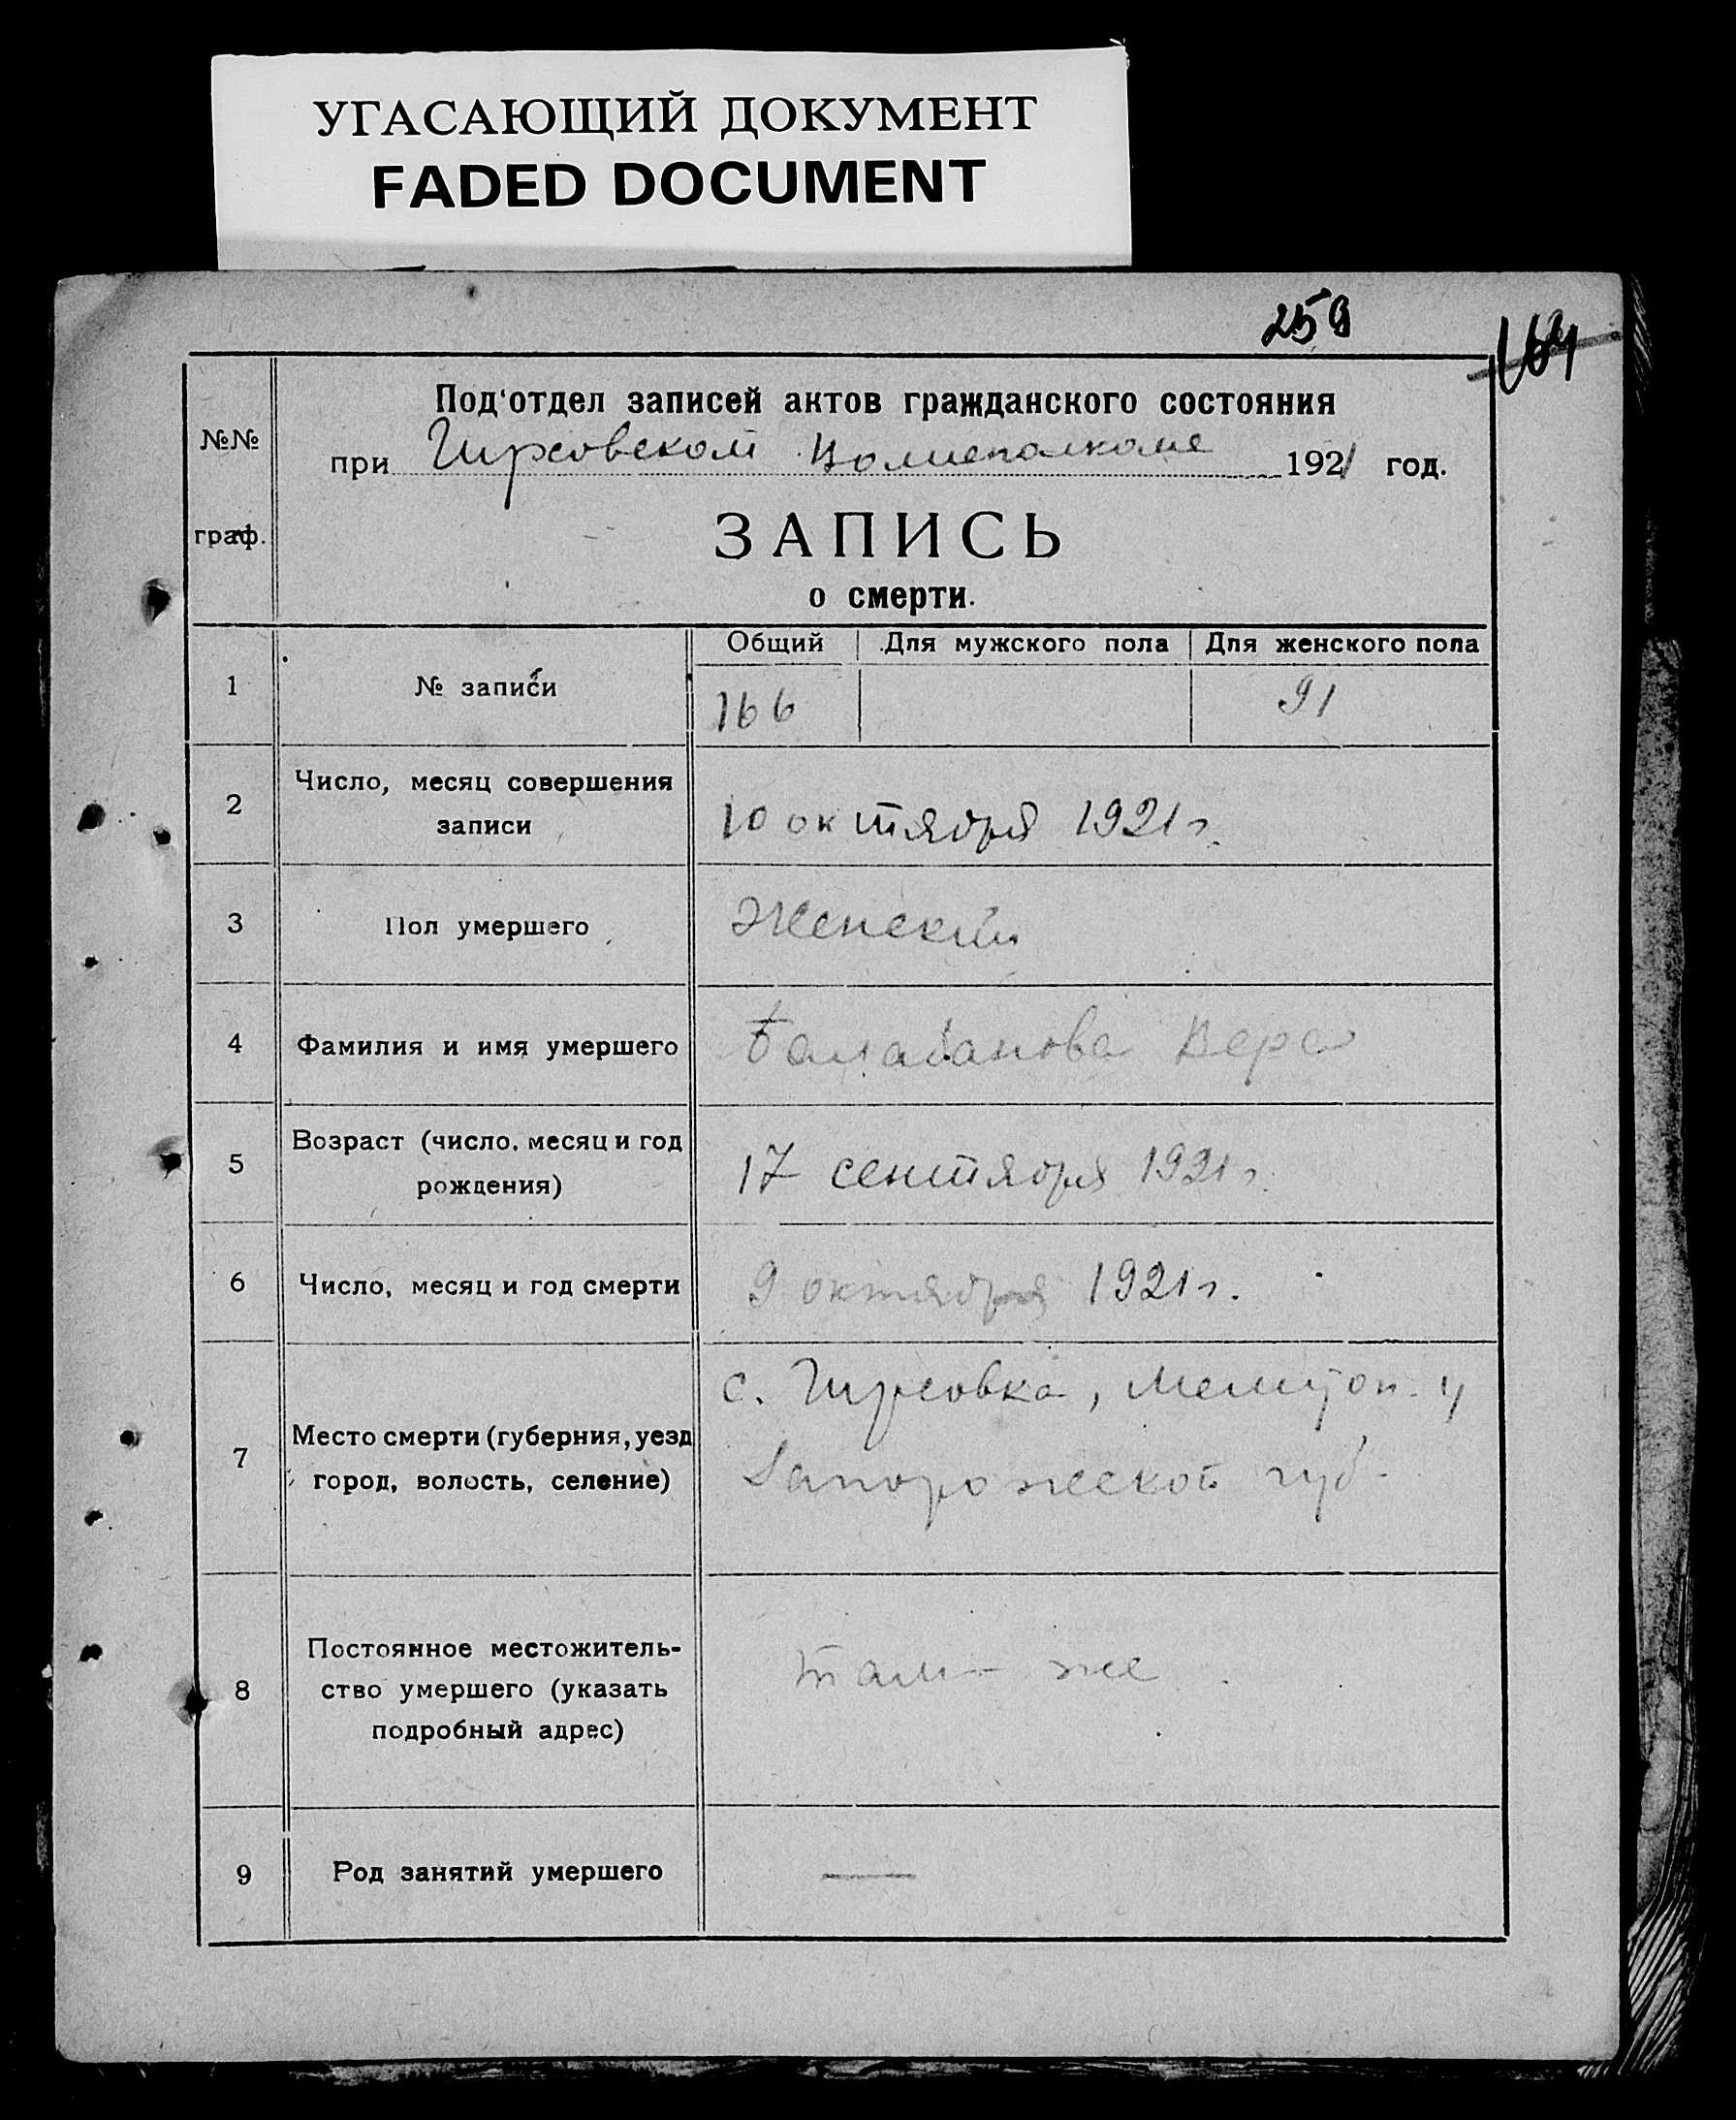 УГАСАЮЩИЙ ДОКУМЕНТ
FADED DOCUMENT
259
164
№№
граф.
Под'отдел записей актов гражданского состояния
при Гирсовском Волисполкоме 1921 год.
ЗАПИСЬ
о смерти.
Общий Для мужского пола Для женского пола
1 № записи 166 91
2 Число, месяц совершения
записи
10 октября 1921 г.
3 Пол умершего Женский
4 Фамилия и имя умершего Балабанова Вера
5 Возраст (число, месяц и год
рождения)
17 сентября 1921 г.
6 Число, месяц и год смерти 9 октября 1921 г.
7 Место смерти (губерния, уезд
город, волость, селение)
с. Гирсовка, Мелитоп. у
Запорожской губ.
8 Постоянное местожитель-
ство умершего (указать
подробный адрес)
там-же
9 Род занятий умершего —